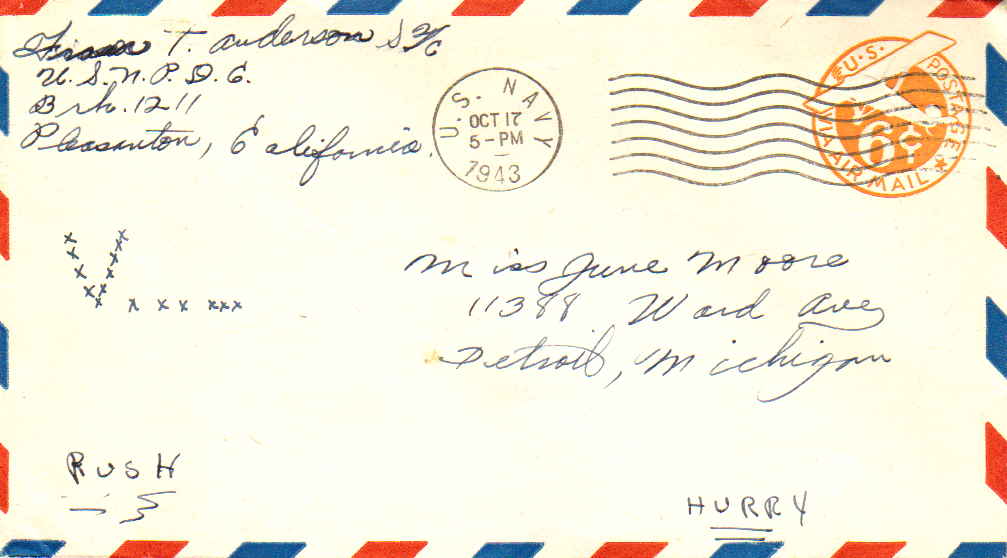 T. Anderson S 2/c
U. S. N. P. D. C.
Brk. 1211
Pleasanton, California.
U.S. NAVY
OCT 17
5-PM
1943
U.S. POSTAGE
6¢
VIA AIR MAIL
Miss June Moore
11388 Ward Ave
Detroit, Michigan
RUSH
HURRY